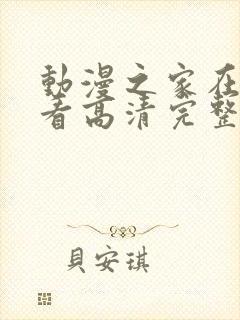 動漫之家在
看高清完整
貝安琪